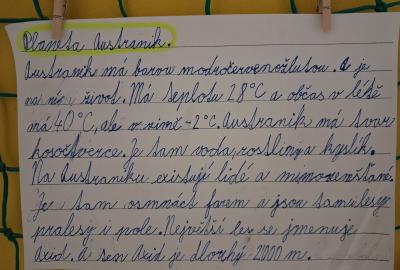 Planeta Austranik.
Austranik má barvu modročervenožlutou. A je
na ním život. Má teplotu 28°C a občas v létě
má 40°C, ale v zimě -2°C. Austranik má tvar
kosočtverce. Je tam voda, rostliny a kyslík.
Na Austraniku existují lidé a mimozemšťané.
Je tam osmnáct farem a jsou tam lesy
pralesy i pole. Největší les se jmenuje
Axid. A sen Axid je dlouhý 2000 m.